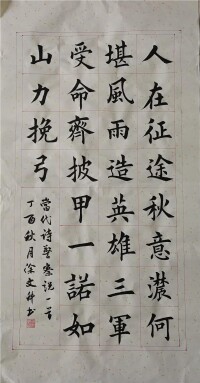 人在征途秋意濃何
堪風雨造英雄三軍
受命齊披甲一諾如
山力挽弓
當代詩說一首
丁酉秋月徐文科書